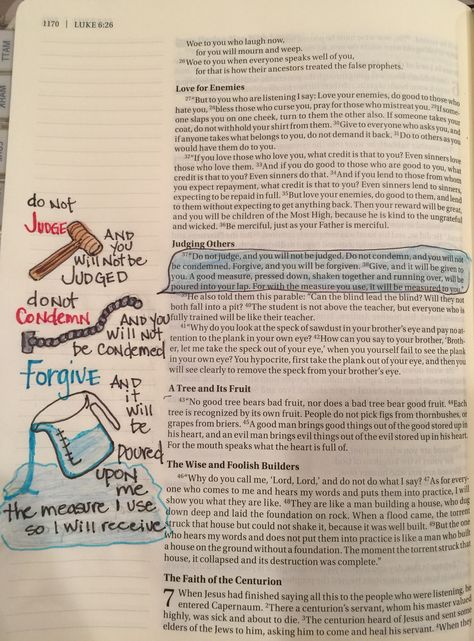 1170 | LUKE 6:26
MATT
MARK
Woe to you who laugh now,
for you will mourn and weep.
26Woe to you when everyone speaks well of you,
for that is how their ancestors treated the false prophets.
Love for Enemies
27"But to you who are listening I say: Love your enemies, do good to those who
hate you, 28bless those who curse you, pray for those who mistreat you. 29If some-
one slaps you on one cheek, turn to them the other also. If someone takes your
coat, do not withhold your shirt from them. 30Give to everyone who asks you, and
if anyone takes what belongs to you, do not demand it back. 31Do to others as you
would have them do to you.
32"If you love those who love you, what credit is that to you? Even sinners love
those who love them. 33And if you do good to those who are good to you, what
credit is that to you? Even sinners do that. 34And if you lend to those from whom
you expect repayment, what credit is that to you? Even sinners lend to sinners,
expecting to be repaid in full. 35But love your enemies, do good to them, and lend
to them without expecting to get anything back. Then your reward will be great,
and you will be children of the Most High, because he is kind to the ungrateful
and wicked. 36Be merciful, just as your Father is merciful.
Judging Others
37"Do not judge, and you will not be judged. Do not condemn, and you will not
be condemned. Forgive, and you will be forgiven. 38Give, and it will be given to
you. A good measure, pressed down, shaken together and running over, will be
poured into your lap. For with the measure you use, it will be measured to you."
39He also told them this parable: "Can the blind lead the blind? Will they not
both fall into a pit? 40The student is not above the teacher, but everyone who is
fully trained will be like their teacher.
41"Why do you look at the speck of sawdust in your brother's eye and pay no at-
tention to the plank in your own eye? 42How can you say to your brother, 'Broth-
er, let me take the speck out of your eye,' when you yourself fail to see the plank
in your own eye? You hypocrite, first take the plank out of your eye, and then you
will see clearly to remove the speck from your brother's eye.
A Tree and Its Fruit
43"No good tree bears bad fruit, nor does a bad tree bear good fruit. 44Each
tree is recognized by its own fruit. People do not pick figs from thornbushes, or
grapes from briers. 45A good man brings good things out of the good stored up in
his heart, and an evil man brings evil things out of the evil stored up in his heart.
For the mouth speaks what the heart is full of.
The Wise and Foolish Builders
46"Why do you call me, 'Lord, Lord,' and do not do what I say? 47As for every-
one who comes to me and hears my words and puts them into practice, I will
show you what they are like. 48They are like a man building a house, who dug
down deep and laid the foundation on rock. When a flood came, the torrent
struck that house but could not shake it, because it was well built. 49But the one
who hears my words and does not put them into practice is like a man who built
a house on the ground without a foundation. The moment the torrent struck that
house, it collapsed and its destruction was complete."
The Faith of the Centurion
7 When Jesus had finished saying all this to the people who were listening, he
entered Capernaum. 2There a centurion's servant, whom his master valued
highly, was sick and about to die. 3The centurion heard of Jesus and sent some
elders of the Jews to him, asking him to come and heal his servant. 4When they
do Not
JUDGE
AND
you
will Not be
JUDGED
do not
Condemn
AND you
will NOT
be condemed
Forgive
AND
it
will
be
poured
upon
me
the measure I use
so I will receive